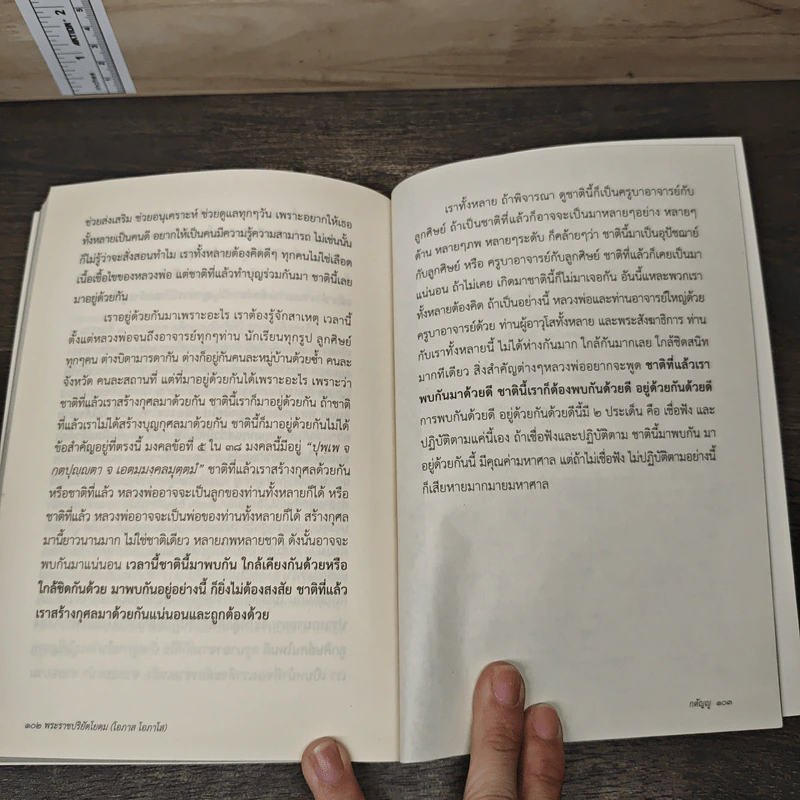 ช่วยส่งเสริม ช่วยอนุเคราะห์ ช่วยดูแลทุกๆวัน เพราะอยากให้เธอ
ทั้งหลายเป็นคนดี อยากให้เป็นคนมีความรู้ความสามารถ ไม่เช่นนั้น
ก็ไม่รู้ว่าจะสั่งสอนทำไม เราทั้งหลายต้องคิดดีๆ ทุกคนไม่ใช่เลือด
เนื้อเชื้อไขของหลวงพ่อ แต่ชาติที่แล้วทำบุญร่วมกันมา ชาตินี้เลย
มาอยู่ด้วยกัน
เราอยู่ด้วยกันมาเพราะอะไร เราต้องรู้จักสาเหตุ เวลานี้
ตั้งแต่หลวงพ่อจนถึงอาจารย์ทุกๆท่าน นักเรียนทุกรูป ลูกศิษย์
ทุกๆคน ต่างบิดามารดากัน ต่างก็อยู่กันคนละหมู่บ้านด้วยซ้ำ คนละ
จังหวัด คนละสถานที่ แต่ที่มาอยู่ด้วยกันได้เพราะอะไร เพราะว่า
ชาติที่แล้วเราสร้างกุศลมาด้วยกัน ชาตินี้เราก็มาอยู่ด้วยกัน ถ้าชาติ
ที่แล้วเราไม่ได้สร้างบุญกุศลมาด้วยกัน ชาตินี้ก็มาอยู่ด้วยกันไม่ได้
ข้อสำคัญอยู่ที่ตรงนี้ มงคลข้อที่ ๕ ใน ๓๘ มงคลนี้มีอยู่ “ปุพฺเพ จ
กตปุญฺญตา จ เอตมฺมงฺคลมุตฺตมํ” ชาติที่แล้วเราสร้างกุศลด้วยกัน
หรือชาติที่แล้ว หลวงพ่ออาจจะเป็นลูกของท่านทั้งหลายก็ได้ หรือ
ชาติที่แล้ว หลวงพ่ออาจจะเป็นพ่อของท่านทั้งหลายก็ได้ สร้างกุศล
มานี้ยาวนานมาก ไม่ใช่ชาติเดียว หลายภพหลายชาติ ดังนั้นอาจจะ
พบกันมาแน่นอน เวลานี้ชาตินี้มาพบกัน ใกล้เคียงกันด้วยหรือ
ใกล้ชิดกันด้วย มาพบกันอยู่อย่างนี้ ก็ยิ่งไม่ต้องสงสัย ชาติที่แล้ว
เราสร้างกุศลมาด้วยกันแน่นอนและถูกต้องด้วย
๑๐๒ พระราชปริยัตโยดม (โอภาส โอภาโส)
เราทั้งหลาย ถ้าพิจารณา ดูชาตินี้ก็เป็นครูบาอาจารย์กับ
ลูกศิษย์ ถ้าเป็นชาติที่แล้วก็อาจจะเป็นมาหลายๆอย่าง หลายๆ
ด้าน หลายๆภพ หลายๆระดับ ก็คล้ายๆว่า ชาตินี้มาเป็นอุปัชฌาย์
กับลูกศิษย์ หรือ ครูบาอาจารย์กับลูกศิษย์ ชาติที่แล้วก็เคยเป็นมา
แน่นอน ถ้าไม่เคย เกิดมาชาตินี้ก็ไม่มาเจอกัน อันนี้แหละพวกเรา
ทั้งหลายต้องคิด ถ้าเป็นอย่างนี้ หลวงพ่อและท่านอาจารย์ใหญ่ด้วย
ครูบาอาจารย์ด้วย ท่านผู้อาวุโสทั้งหลาย และพระสังฆาธิการ ท่าน
กับเราทั้งหลายนี้ ไม่ได้ห่างกันมาก ใกล้กันมากเลย ใกล้ชิดสนิท
มากทีเดียว สิ่งสำคัญต่างๆหลวงพ่ออยากจะพูด ชาติที่แล้วเรา
พบกันมาด้วยดี ชาตินี้เราก็ต้องพบกันด้วยดี อยู่ด้วยกันด้วยดี
การพบกันด้วยดี อยู่ด้วยกันด้วยดีนี้มี ๒ ประเด็น คือ เชื่อฟัง และ
ปฏิบัติตามแค่นี้เอง ถ้าเชื่อฟังและปฏิบัติตาม ชาตินี้มาพบกัน มา
อยู่ด้วยกันนี้ มีคุณค่ามหาศาล แต่ถ้าไม่เชื่อฟัง ไม่ปฏิบัติตามอย่างนี้
ก็เสียหายมากมายมหาศาล
กตัญญู ๑๐๓